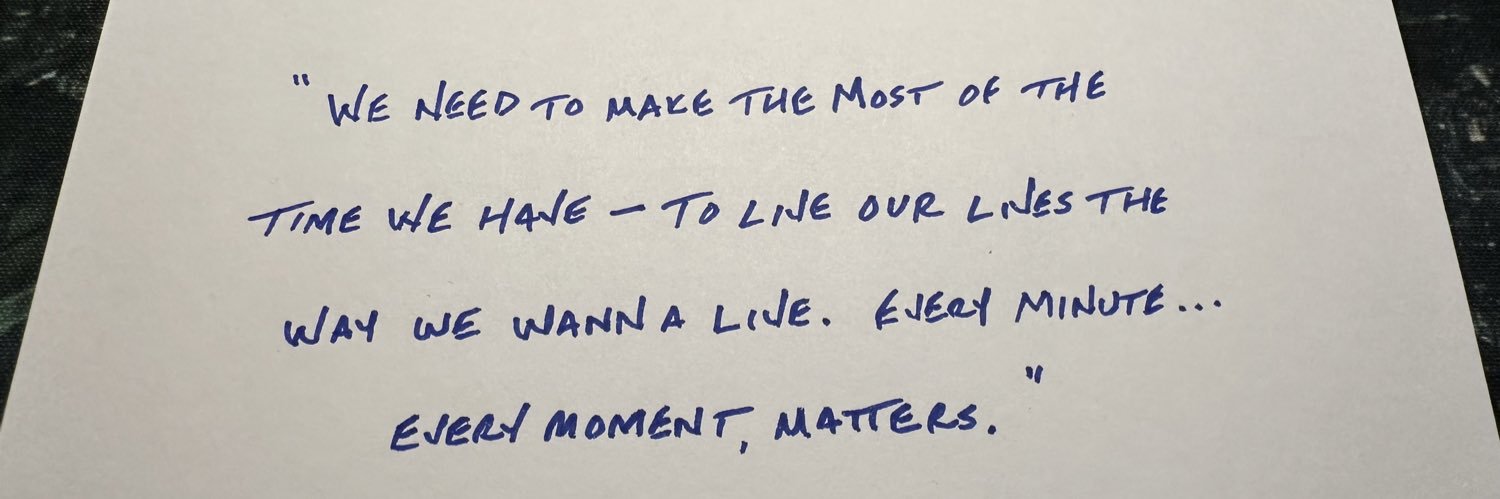 "WE NEED TO MAKE THE MOST OF THE
TIME WE HAVE – TO LIVE OUR LIVES THE
WAY WE WANNA LIVE. EVERY MINUTE...
EVERY MOMENT, MATTERS."